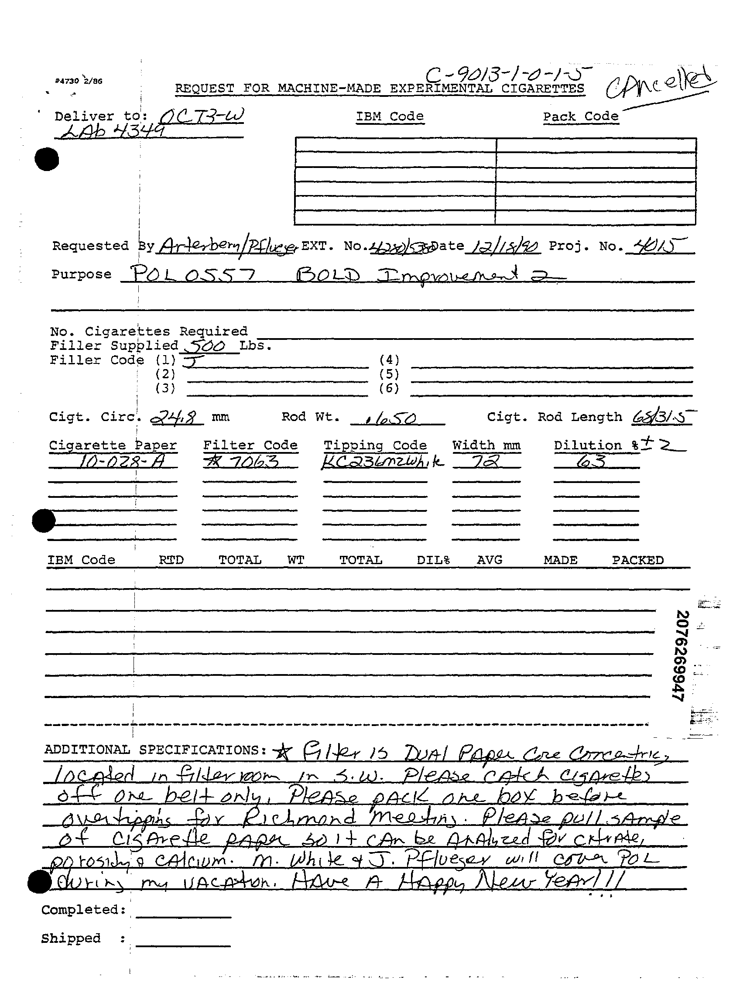 #4730 2/86
C-9013-1-0-1-5
REQUEST FOR MACHINE-MADE EXPERIMENTAL CIGARETTES
CAncelled
Deliver to: OCT3-W IBM Code Pack Code
LAb 4349
Requested By Arterbern/Pflueger EXT. No. Date 12/18/90 Proj. No. 4015
Purpose POL 0557 BOLD Improvement 2
No. Cigarettes Required
Filler Supplied 500 Lbs.
Filler Code (1) J (4)
(2) (5)
(3) (6)
Cigt. Circ. 24.8 mm Rod Wt. .1650 Cigt. Rod Length 68/31.5
Cigarette Paper Filter Code Tipping Code Width mm Dilution % ± 2
10-028-A ☆ 7063 72 63
IBM Code RTD TOTAL WT TOTAL DIL% AVG MADE PACKED
2076269947
ADDITIONAL SPECIFICATIONS: ☆ Filter is DUAl PAper Core Concentric,
locAted in filter room in S.W. PleAse cAtch cigArettes
off one belt only, PleAse pAck one box before
overtipping for Richmond Meeting. PleAse pull sAmple
of cigArette pAper so it cAn be AnAlyzed for citrAte,
porosity & cAlcium. M. White & J. Pflueger will cover POL
during my vAcAtion. HAve A HAppy New YeAr!!!
Completed:
Shipped :